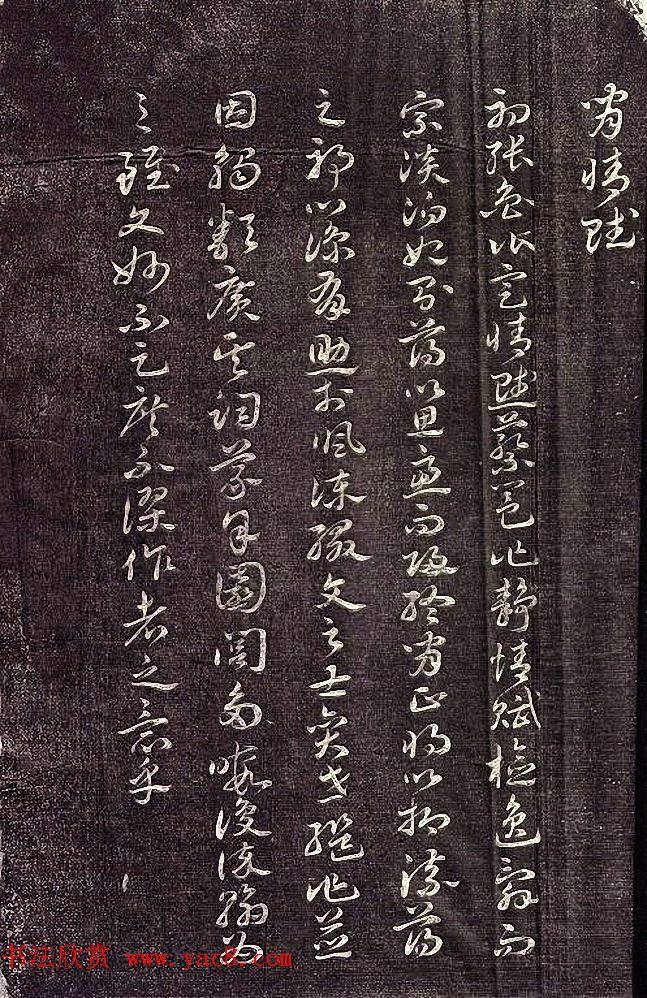 閑情賦
初張衡作定情賦蔡邕作靜情賦檢逸辭而
宗淡泊始則蕩以思慮而歸終閑正將以抑流蕩
之邪心諒有助於諷諫綴文之士奕世繼作並
因觸類廣其詞義余園閭多暇復染翰為
之雖文妙不足庶不謬作者之意乎
书法欣赏 www.yac8.com